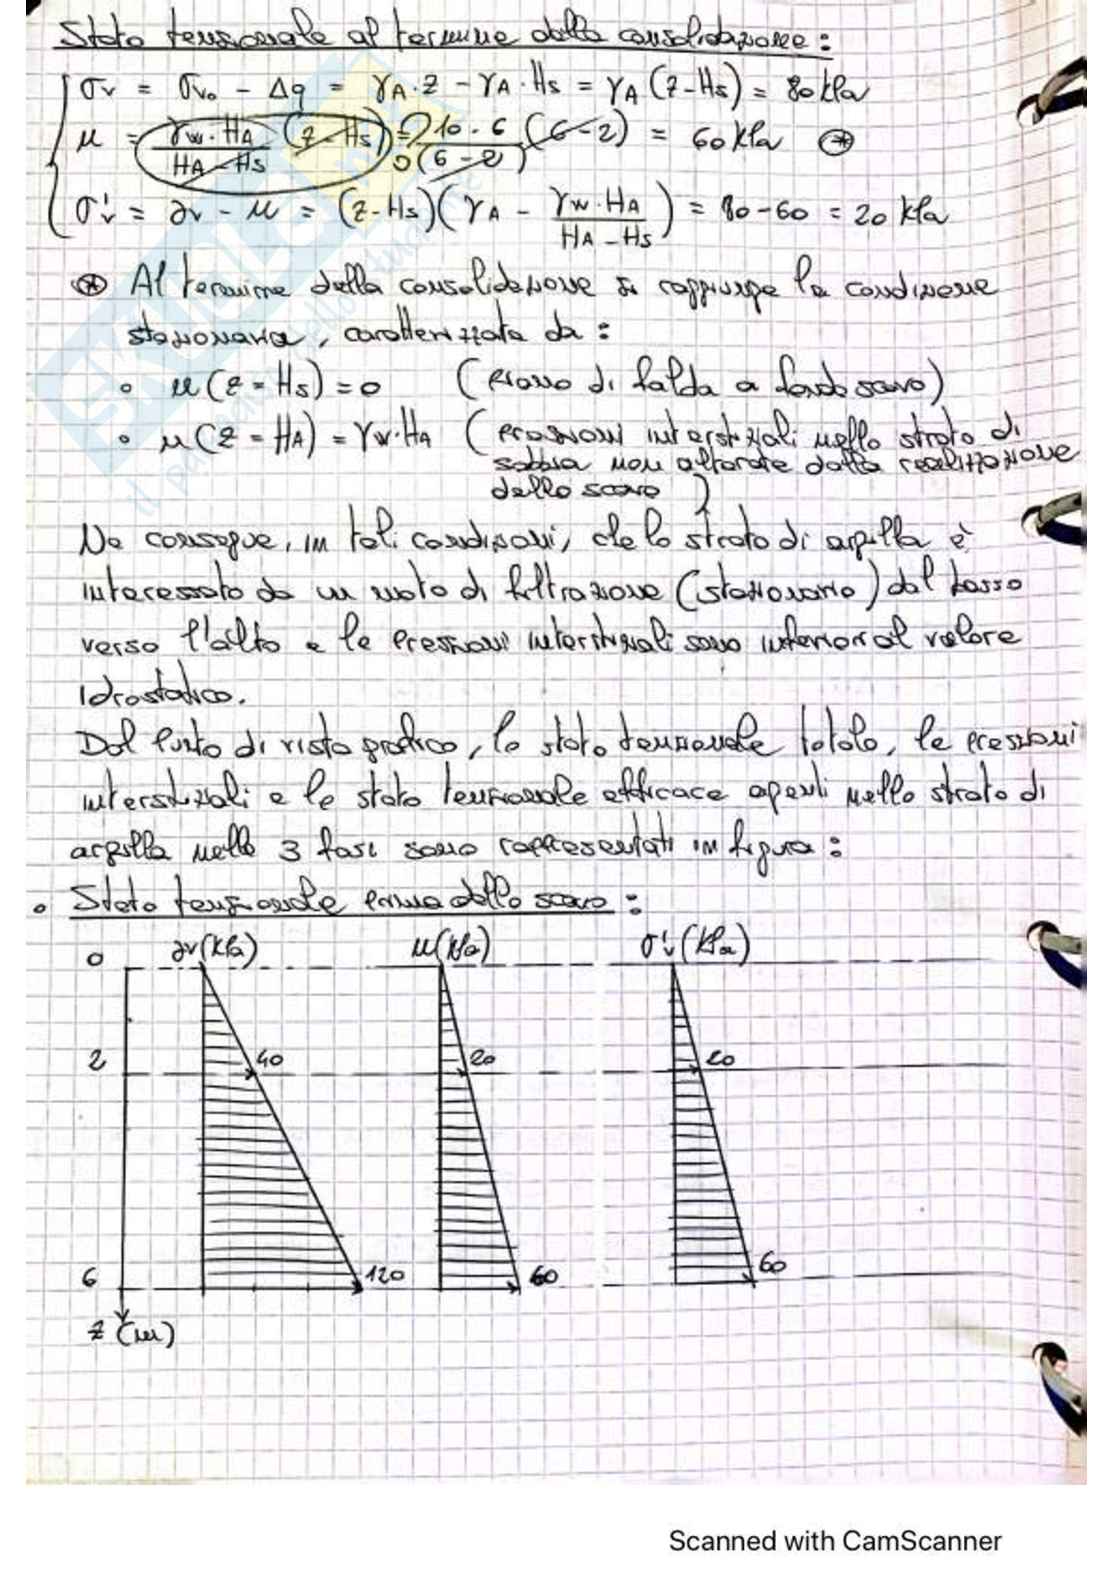 Stato tensionale al termine della consolidazione:
σv = σvo - Δq = γA·z - γA·Hs = γA(z-Hs) = 80 kPa
u = γw·HA/(HA-Hs) (z-Hs) = 10·6/(6-2) (6-2) = 60 kPa ⊛
σ'v = σv - u = (z-Hs)(γA - γw·HA/(HA-Hs)) = 80-60 = 20 kPa
⊛ Al termine della consolidazione si raggiunge la condizione
stazionaria, caratterizzata da:
• u(z=Hs)=0 (Piano di falda a fondo scavo)
• u(z=HA)=γw·HA (Pressioni interstiziali nello strato di
sabbia non alterate dalla realizzazione
dello scavo)
Ne consegue, in tali condizioni, che lo strato di argilla è
interessato da un moto di filtrazione (stazionario) dal basso
verso l'alto e le pressioni interstiziali sono inferiori al valore
idrostatico.
Dal punto di vista grafico, lo stato tensionale totale, le pressioni
interstiziali e lo stato tensionale efficace agenti nello strato di
argilla nelle 3 fasi sono rappresentati in figura:
• Stato tensionale prima dello scavo:
0 σv(kPa) u(kPa) σ'v(kPa)
2 40 20 20
6 120 60 60
z (m)
Scanned with CamScanner